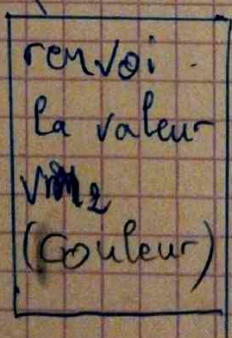 renvoi
la valeur
(couleur)